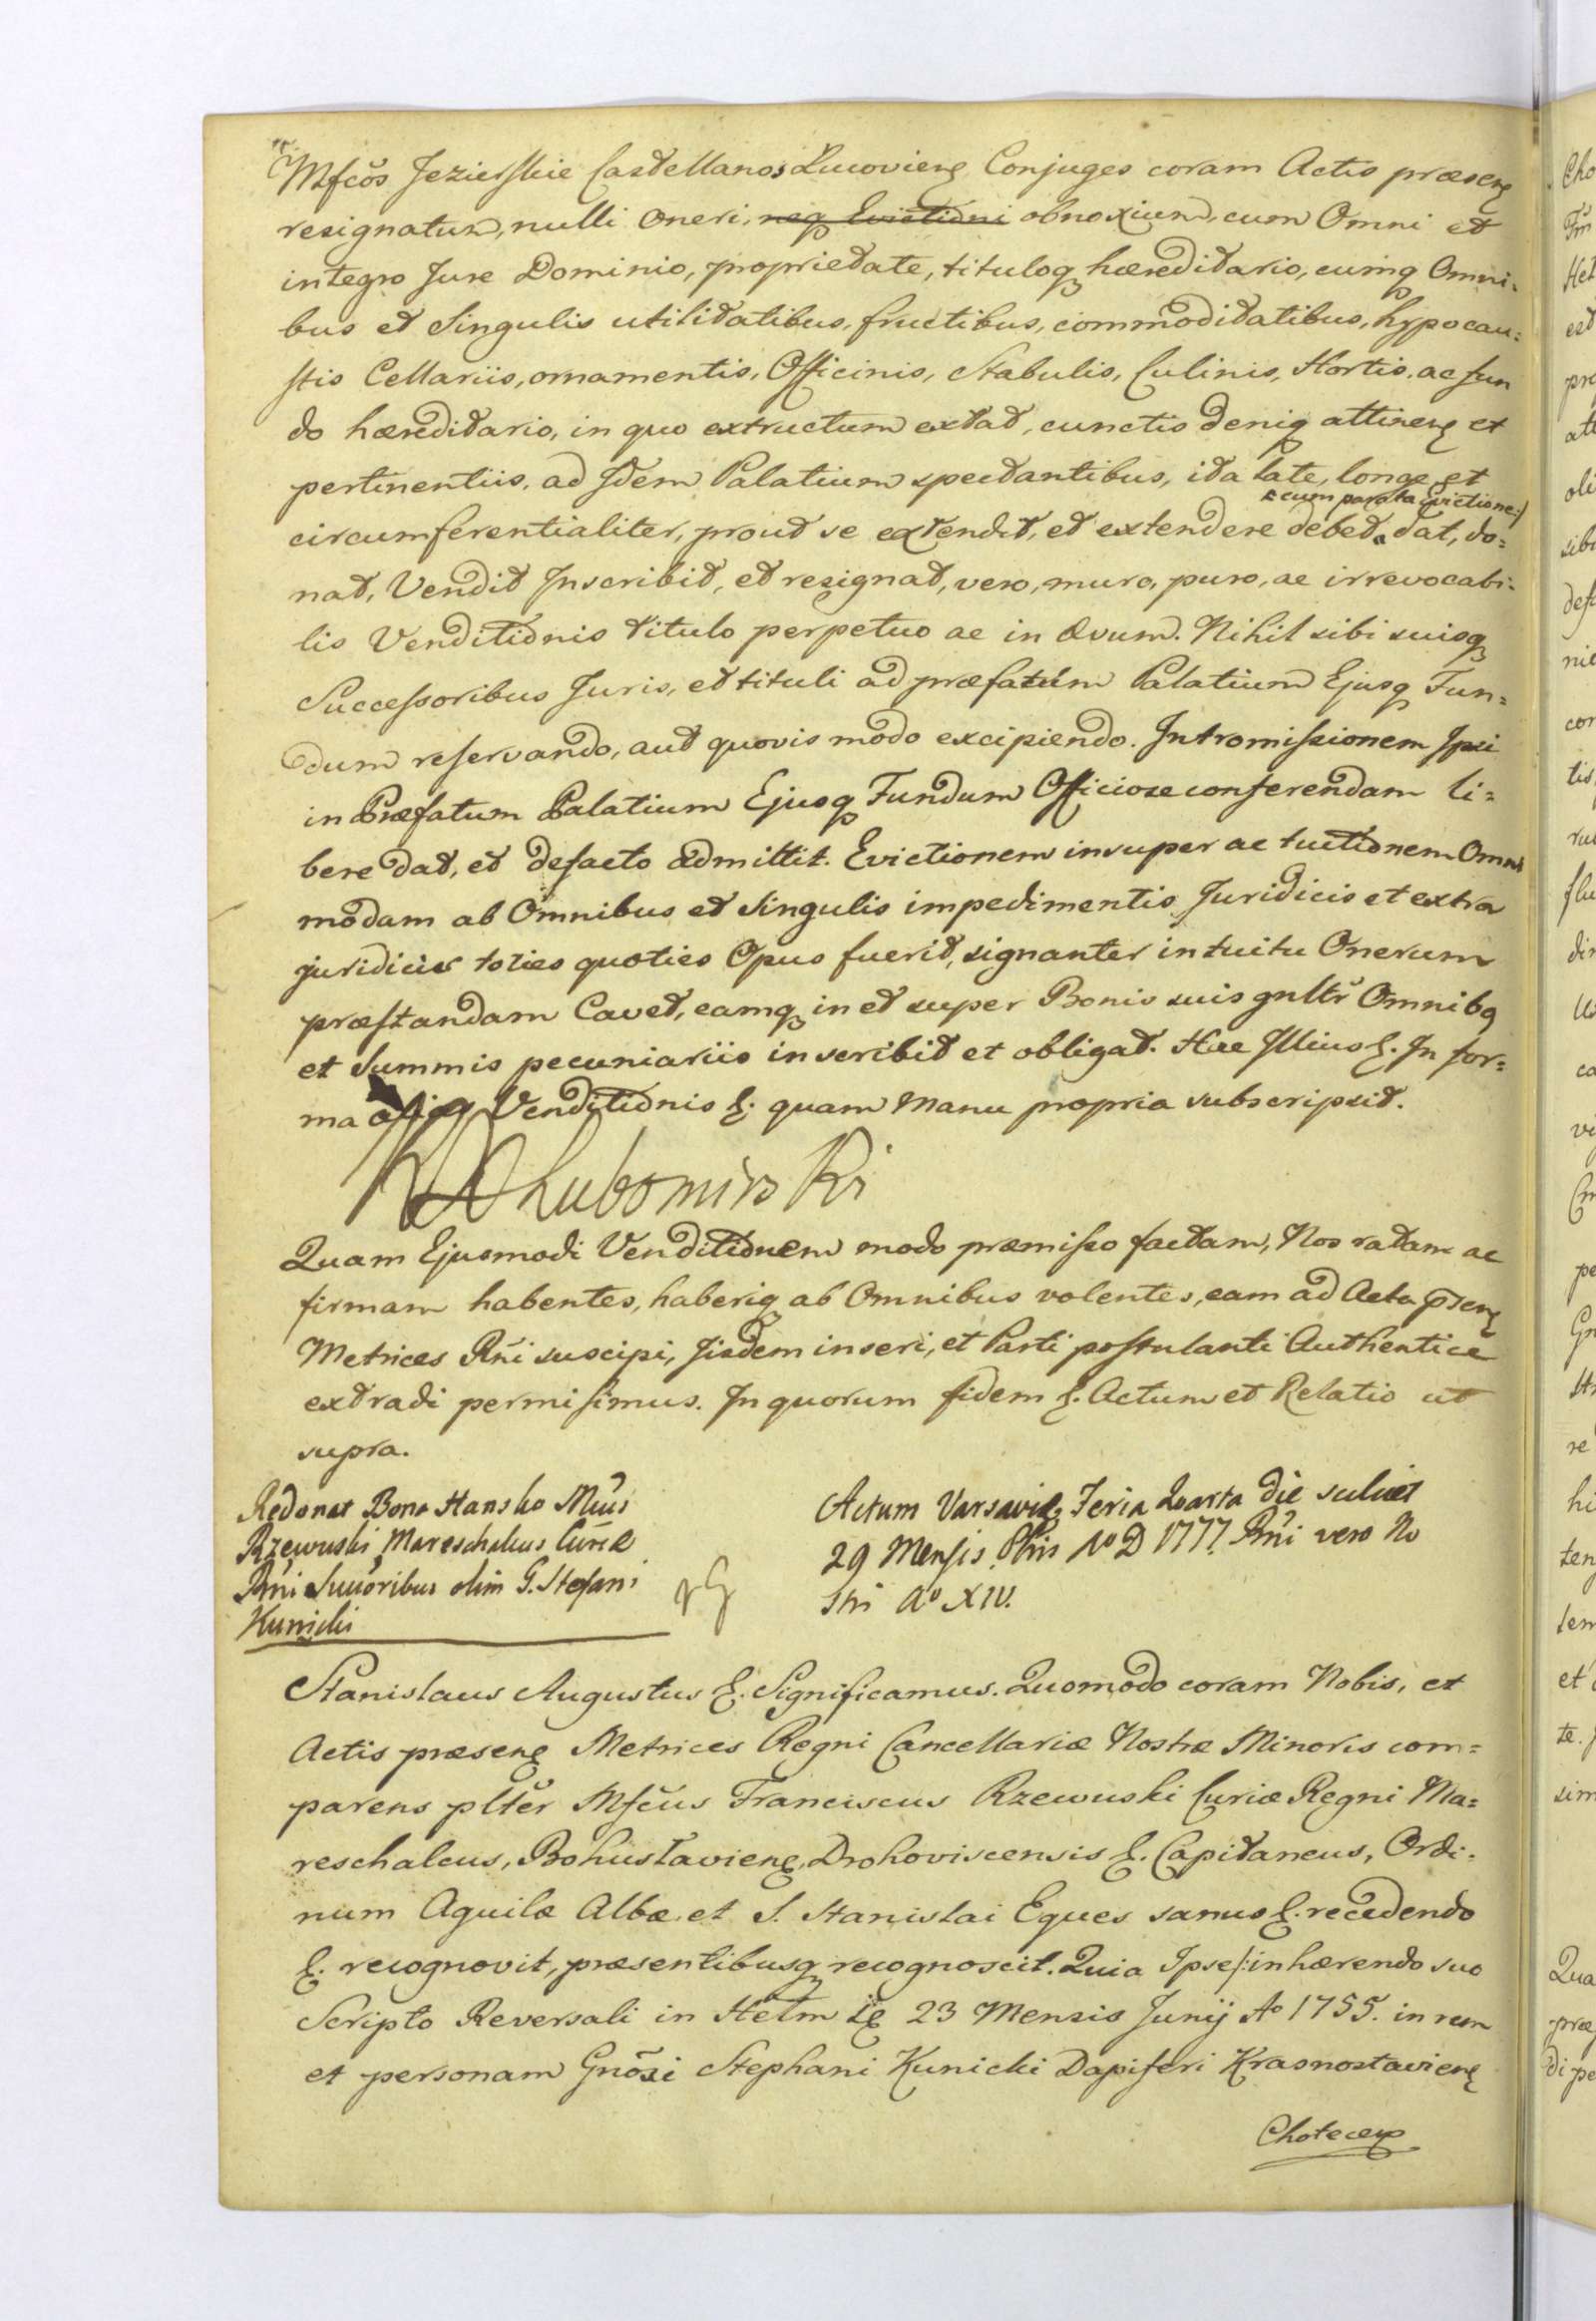 Mfcos Jezierskie Castellanos Lucoviens Conjuges coram Actis præsens
resignatum, nulli oneri, neq Evictioni obnoxium, cum Omni et
integro Jure Dominio, proprietate, tituloq hæreditario, cumq Omni-
bus et Singulis utilitatibus, fructibus, commoditatibus, hypocau=
stis Cellariis, ornamentis, Officinis, Stabulis, Culinis, Hortis, ac fun
do hæreditario, in quo extructum extat, cunctis deniq attinens et
pertinentiis, ad Idem Palatium spectantibus, ita late, longe et
/:cum parata Evictione:/
circumferentialiter, prout se extendit, et extendere debet, dat, do=
nat, Vendit Inscribit, et resignat, vero, muro, puro, ac irrevocabi-
lis Venditionis titulo perpetuo ac in ævum. Nihil sibi suisq
Successoribus Juris, et tituli ad præfatum Palatium Ejusq Fun=
dum reservando, aut quovis modo excipiendo. Intromissionem Ipsi
in Præfatum Palatium Ejusq Fundum Officiose conferendam li=
bere dat, et defacto admittit. Evictionem insuper ac tuitionem Omni
modam ab Omnibus et Singulis impedimentis Juridicis et extra
juridicis toties quoties Opus fuerit, signanter intuitu Onerum
præstandam Cavet, eamq in et super Bonis suis gnltr Omnibq
et Summis pecuniariis inscribit et obligat. Hac Illius &. In for=
ma Venditionis &. quam Manu propria subscripsit.
Lubomirski
Quam Ejusmodi Venditionem modo præmisso factam, Nos ratam ac
firmam habentes, haberiq ab Omnibus volentes, eam ad Acta pſens
Metrices Rni suscipi, Iisdem inseri, et Parti postulanti Authentice
extradi permisimus. In quorum fidem &. Actum et Relatio ut
supra.
Redonat Bona Hansko Mcus
Rzewuski Mareschalcus Curiæ
Rni Succoribus olim G. Stefani
Kunicki
Actum Varsaviæ Feria Quarta die scilicet
29 Mensis Obris Ao D 1777. Rni vero No
stri Ao XIV.
Stanislaus Augustus &. Significamus. Quomodo coram Nobis, et
Actis præsens Metrices Regni Cancellariæ Nostræ Minoris com=
parens plter Mfcus Franciscus Rzewuski Curiæ Regni Ma=
reschalcus, Bohuslaviens, Drohoviscensis &. Capitaneus, Ordi-
num Aquilæ Albæ, et S. Stanislai Eques sanus &. recedendo
&. recognovit, præsentibusq recognoscit. Quia Ipse /:inhærendo suo
Scripto Reversali in Helm 23 Mensis Junij Ao 1755. in rem
et personam Gnosi Stephani Kunicki Dapiferi Krasnostaviens